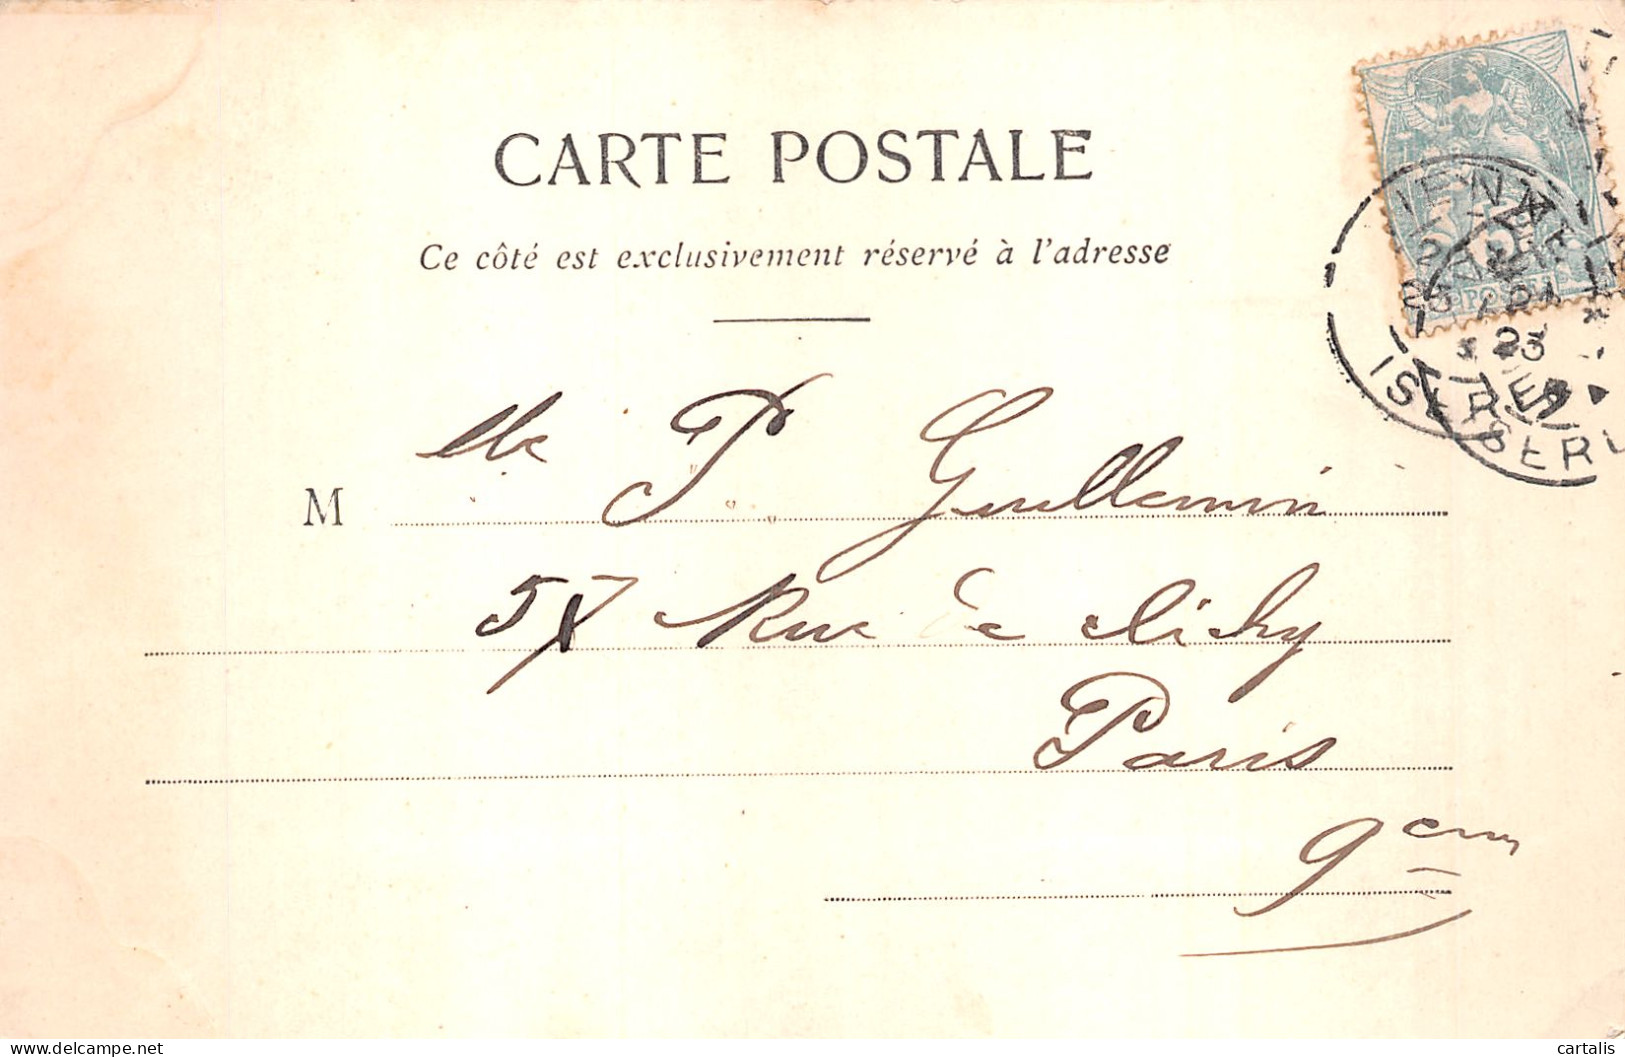 CARTE POSTALE
Ce côté est exclusivement réservé à l'adresse
M
P Guillemin
57 Rue de Clichy
Paris
9em
5
POSTES
23
ISERE
ISERE
cartalis